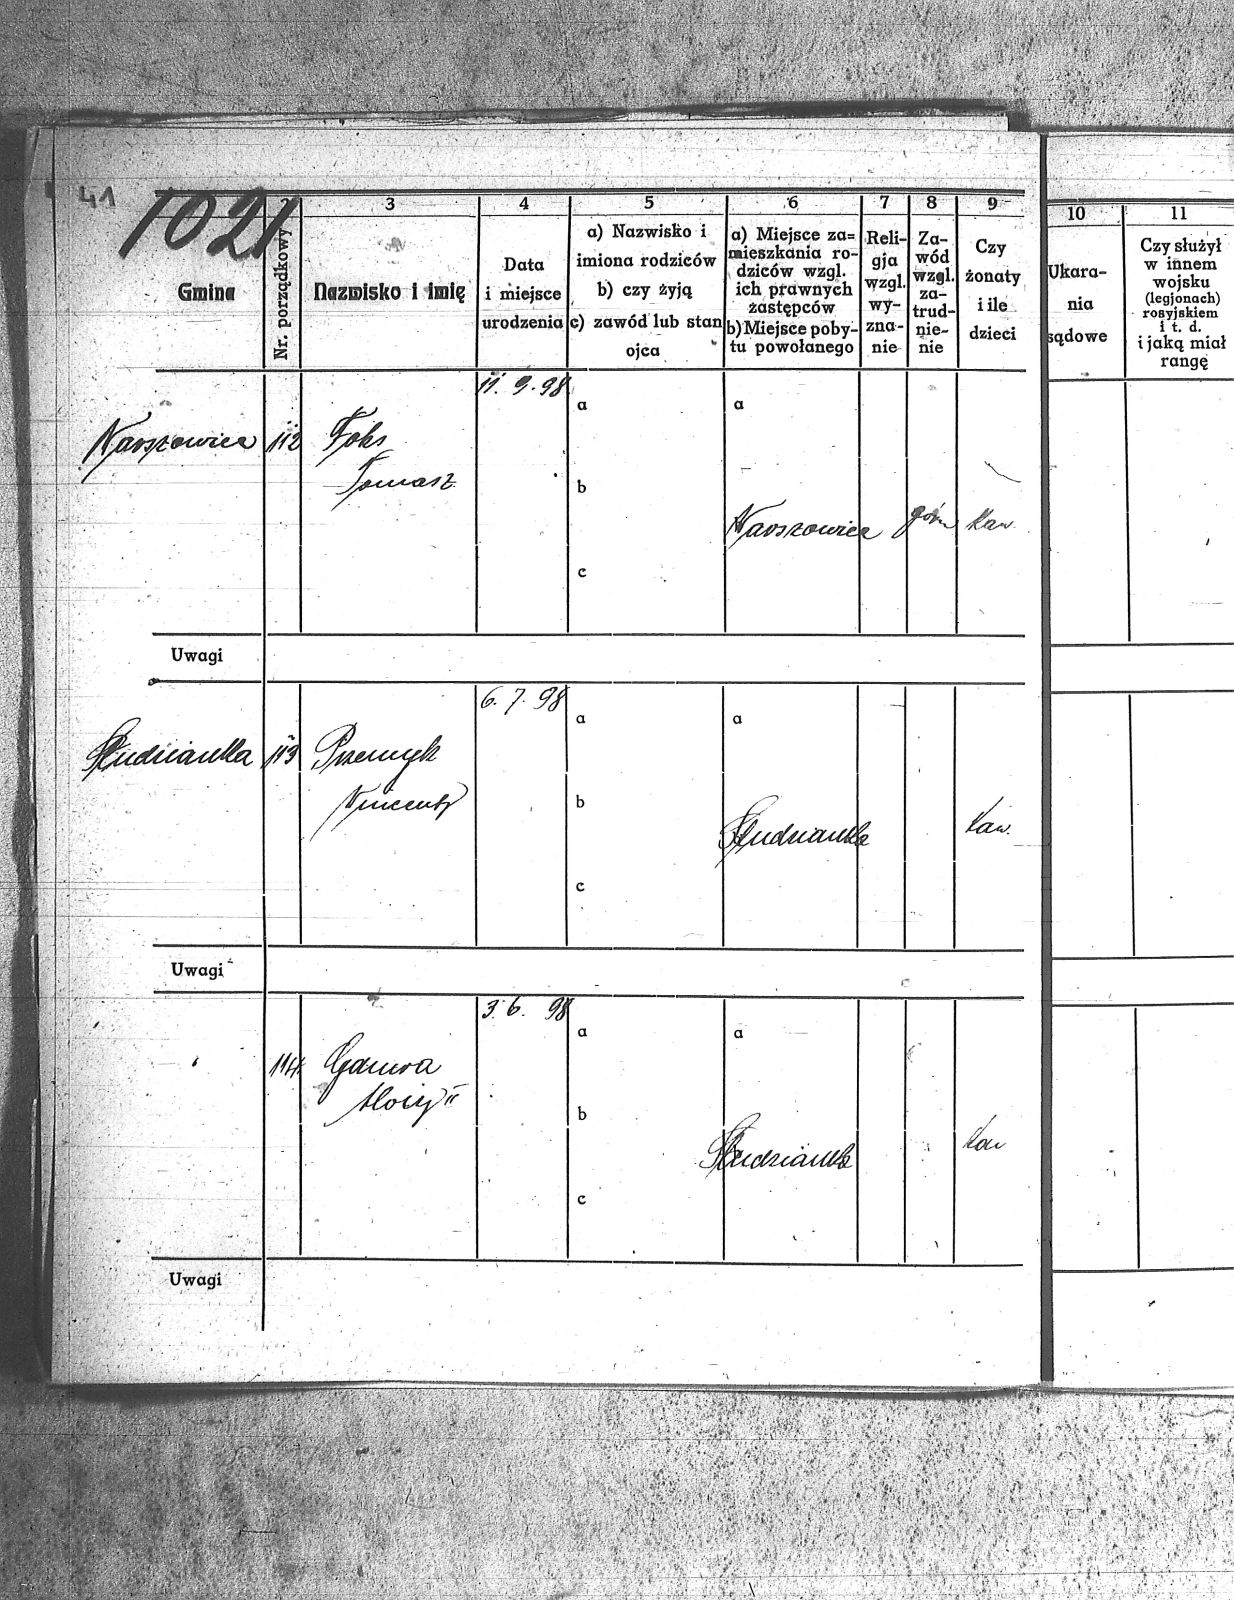 41
1021
2 3 4 5 6 7 8 9 10 11
Gmina
Nr. porządkowy
Nazwisko i imię
Data
i miejsce
urodzenia
a) Nazwisko i
imiona rodziców
b) czy żyją
c) zawód lub stan
ojca
a) Miejsce za=
mieszkania ro-
dziców wzgl.
ich prawnych
zastępców
b) Miejsce poby-
tu powołanego
Reli-
gja
wzgl.
wy-
zna-
nie
Za-
wód
wzgl.
za-
trud-
nie-
nie
Czy
żonaty
i ile
dzieci
Ukara-
nia
sądowe
Czy służył
w innem
wojsku
(legjonach)
rosyjskiem
i t. d.
i jaką miał
rangę
11. 9. 98
a a
Warszowice 112 Foks
Tomasz
b
Warszowice górn Kaw.
c
Uwagi
6. 7. 98
a a
Studzionka 113
Wincenty
b
Studzionka Kaw.
c
Uwagi
3. 6. 98
a a
114
Alojzy II
b
Studzionka Kaw
c
Uwagi